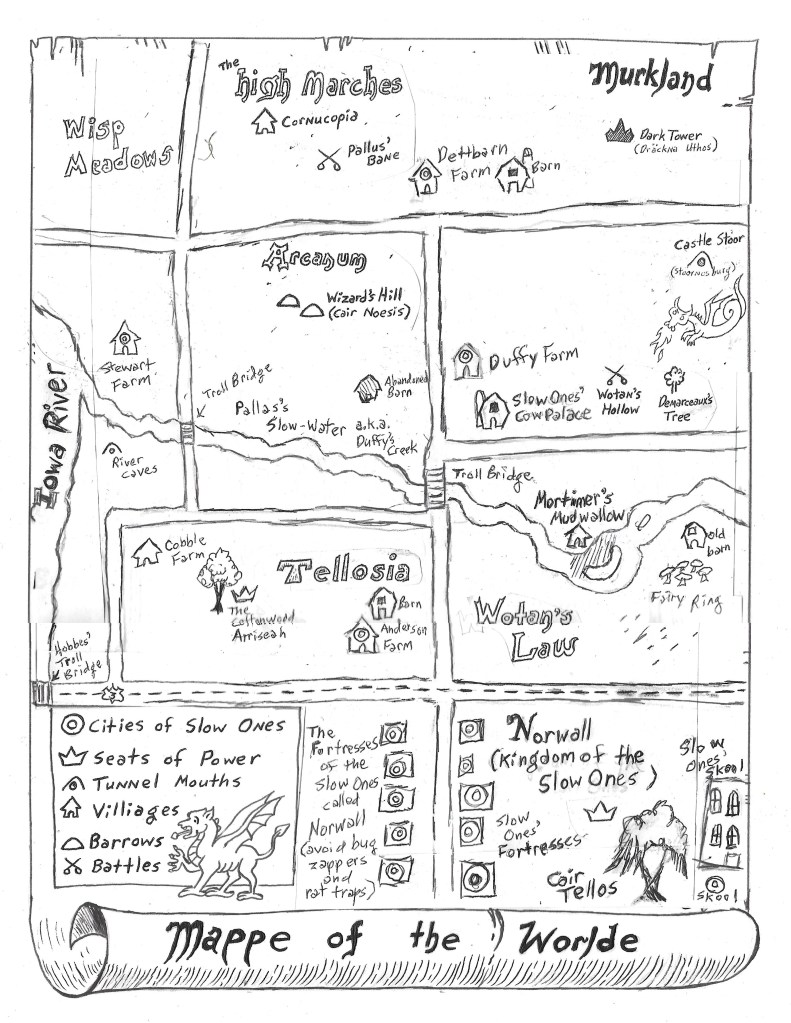 The
High Marches
Murkland
Wisp
Meadows
Cornucopia
Pallus'
Bane
Dark Tower
(Dräckna Uthos)
Dettbarn
Farm
Barn
Arcanum
Wizard's Hill
(Cair Noesis)
Castle Stoor
Stewart
Farm
Troll Bridge
Abandoned
Barn
Pallas's
Slow-Water a.k.a.
Duffy's
Creek
Duffy Farm
Slow Ones'
Cow Palace
Wotan's
Hollow
Demarceaux's
Tree
Iowa River
River
Caves
Troll Bridge
Mortimer's
Mudwallow
Old
barn
Fairy Ring
Cobble
Farm
Tellosia
The
Cottonwood
Arriseah
Barn
Anderson
Farm
Wotan's
Law
Hobbes'
Troll
Bridge
Cities of Slow Ones
Seats of Power
Tunnel Mouths
Villiages
Barrows
Battles
The
Fortresses
of the
Slow Ones
called
Norwall
(avoid bug
zappers
and
rat traps)
Norwall
(Kingdom of the
Slow Ones)
Slow
Ones'
Fortresses
Cair
Tellos
Slow
Ones'
Skool
Skool
Mappe of the Worlde